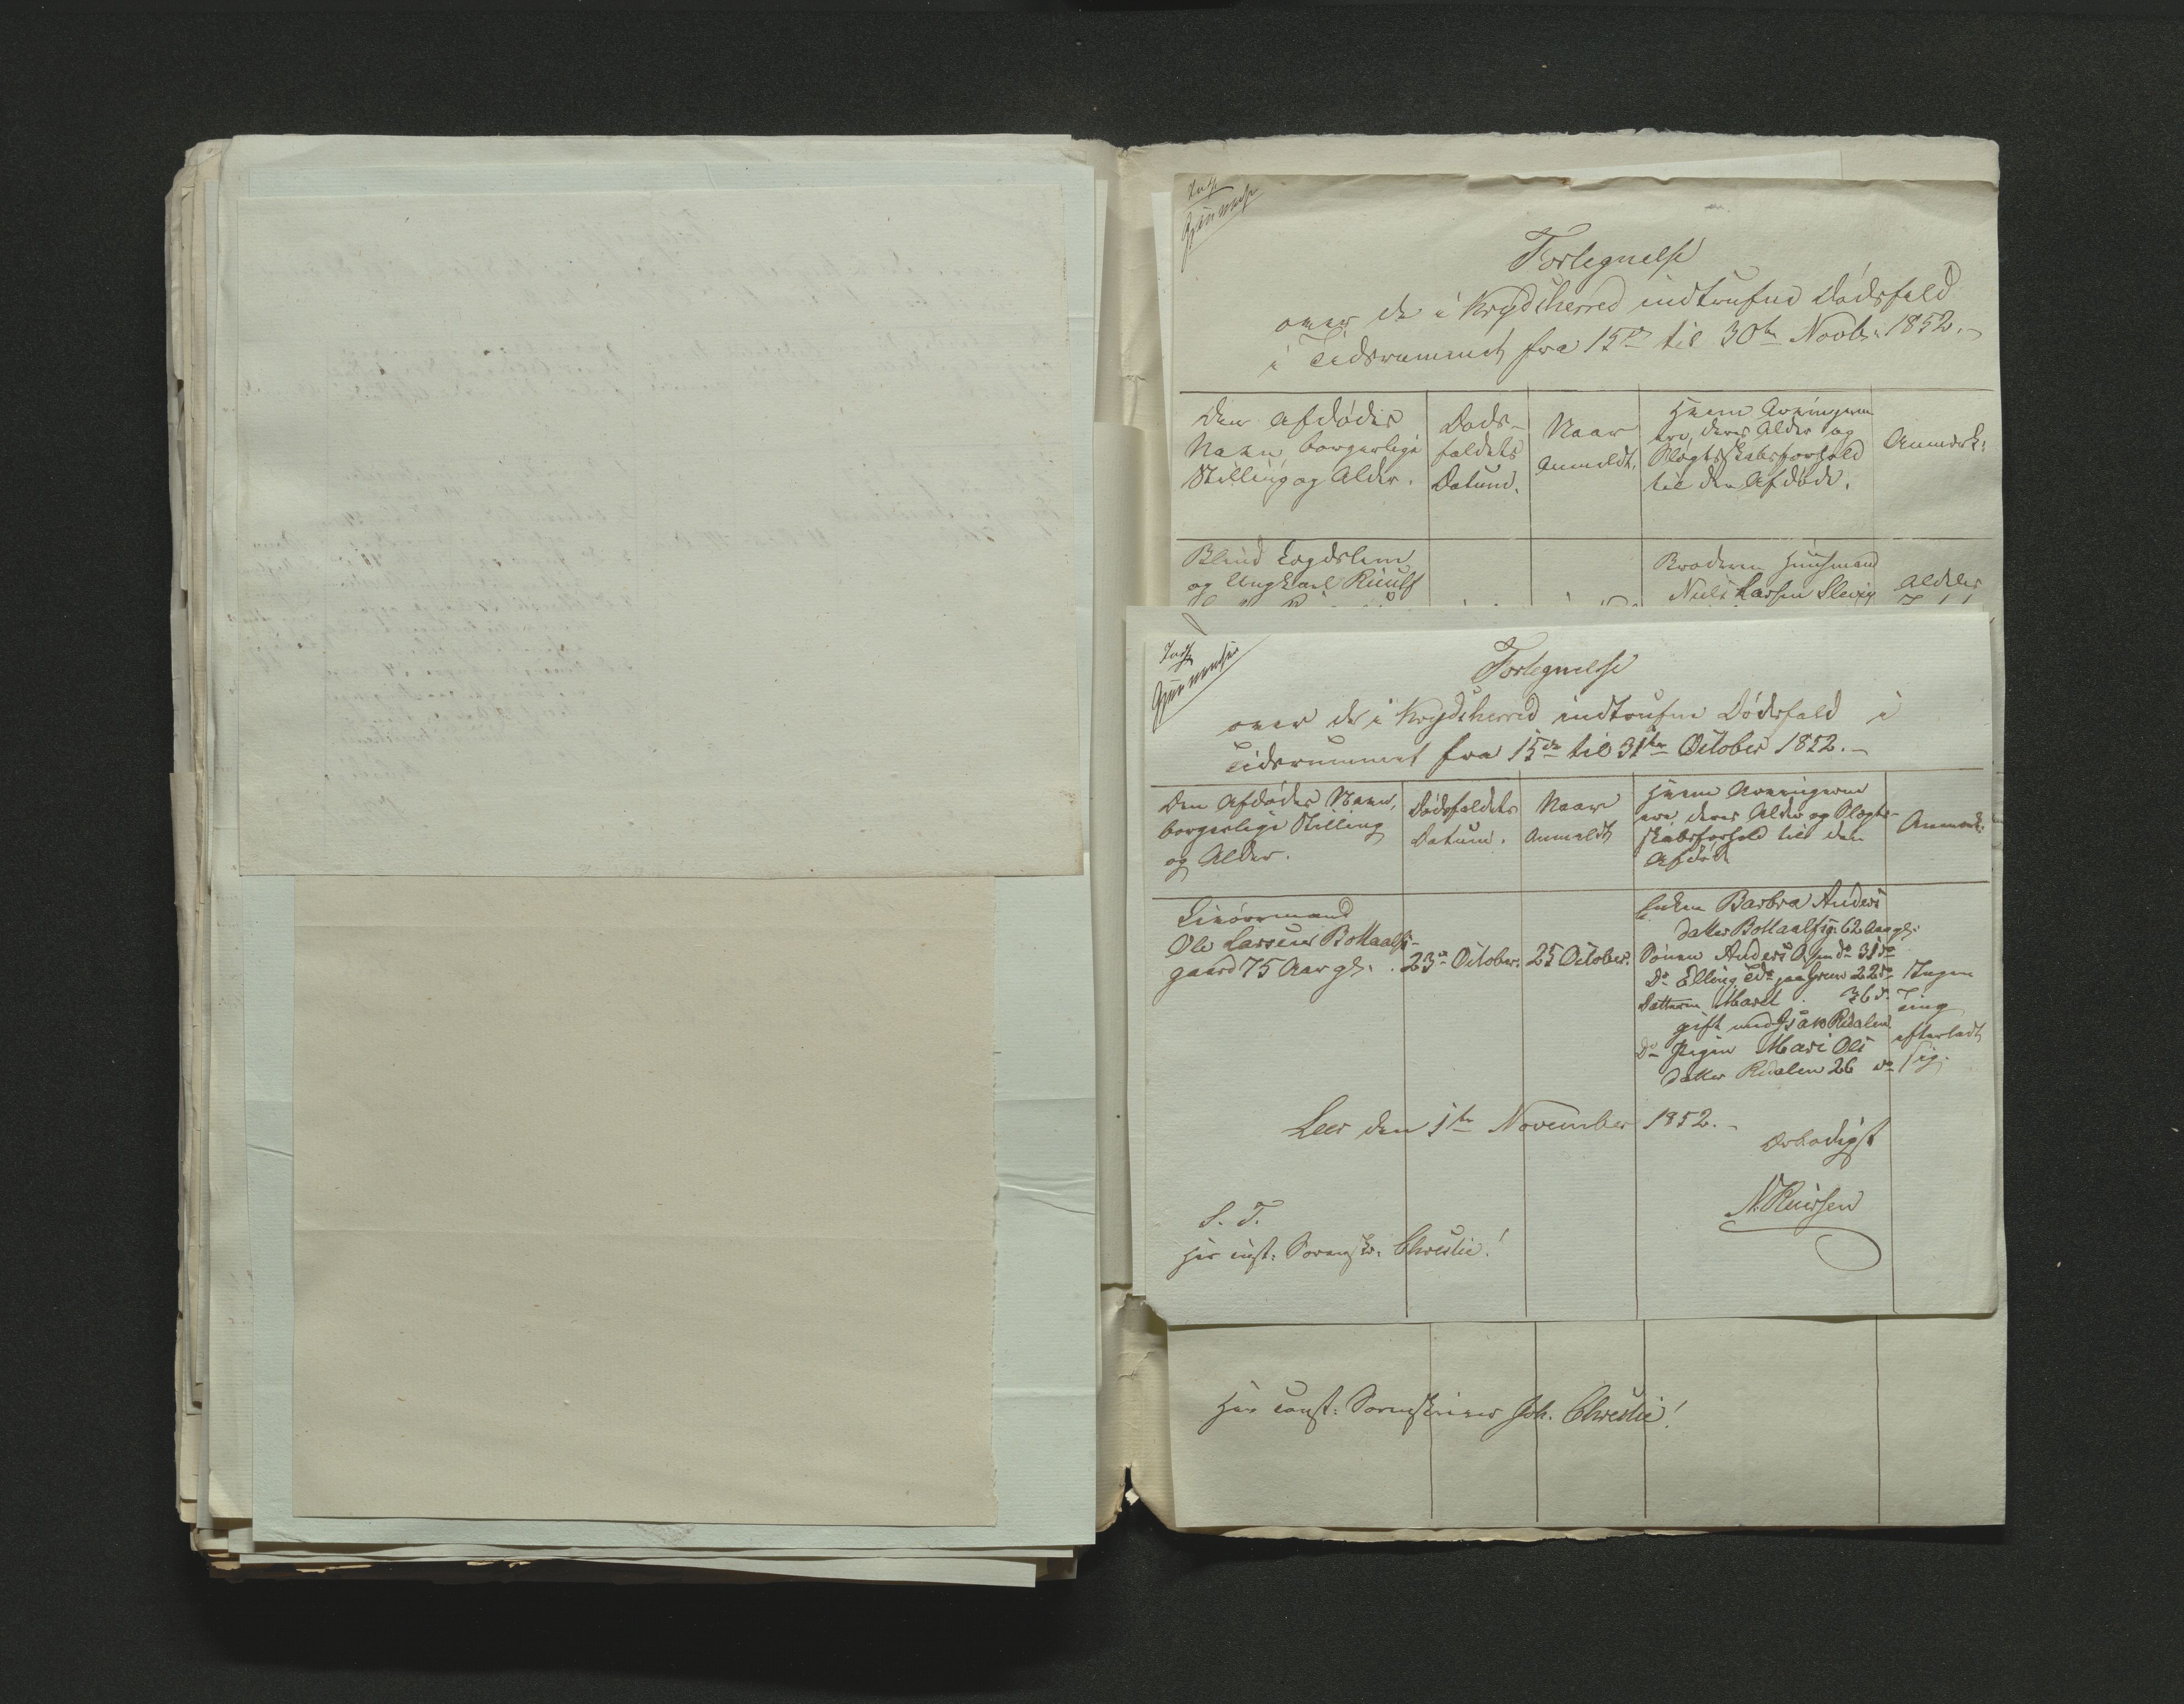 Forlegnelse
over de i Krydsherred indtrufne Dødsfald
i Tidsrummet fra 15de til 30te Novbr: 1852.
Den Afdødes
Navn, borgerlige
Stilling og Alder.
Døds-
faldets
Datum.
Naar
Anmeldt.
Hvem Arvingerne
ere, deres Alder og
Slægtskabsforhold
til den Afdøde.
Anmærk:
Blind Lægdslem
og Ungkarl
Broderen Huusmand
Niels Larsen
Aldeles
Forlegnelse
over de i Krydsherred indtrufne Dødsfald i
Tidsrummet fra 15de til 31te October 1852.
Den Afdødes Navn,
borgerlige Stilling
og Alder.
Dødsfaldets
Datum.
Naar
Anmeldt
Hvem Arvingerne
ere, deres Alder og Slægt-
skabsforhold til den
Afdøde
Anmærk:
Ole Larsen Bottaalfs-
gaard 75 Aar gl.
23de October.
25 October.
Enken Barbra Anders
datter Bottaalfsg: 62 Aar gl.
Sønen Anders 31 do
Do Elling 22 do
Datteren Marit 36 do
gift med
Do Pigen Mari Ols
datter 26 do
Ingen
Ting
efterladt
sig.
Leer den 1te November 1852.
Ærbødigst
S. T.
Hr const: Sorenskr: Christie!
Hr const: Sorenskriver Joh. Christie!